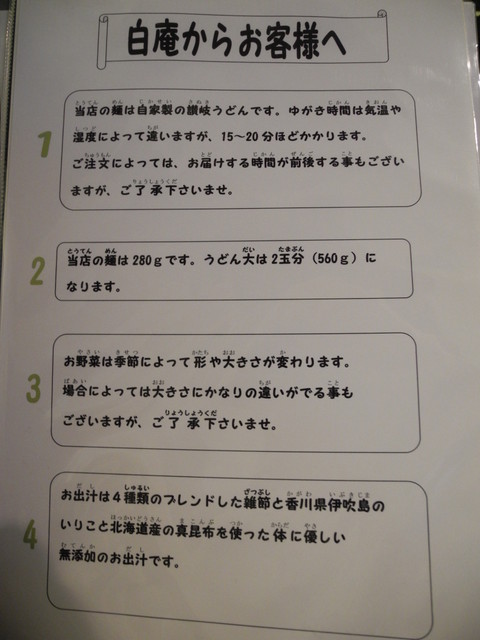 白庵からお客様へ
1
当店の麺は自家製の讃岐うどんです。ゆがき時間は気温や
湿度によって違いますが、15～20分ほどかかります。
ご注文によっては、お届けする時間が前後する事もござい
ますが、ご了承下さいませ。
2
当店の麺は280gです。うどん大は2玉分（560g）に
なります。
3
お野菜は季節によって形や大きさが変わります。
場合によっては大きさにかなりの違いがでる事も
ございますが、ご了承下さいませ。
4
お出汁は4種類のブレンドした雑節と香川県伊吹島の
いりこと北海道産の真昆布を使った体に優しい
無添加のお出汁です。